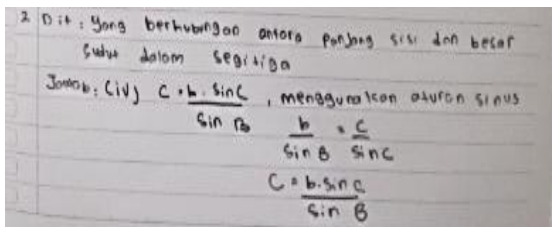 2 Dit : yang berhubungan antara panjang sisi dan besar
sudut dalam segitiga
Jawab : (iv) C = b. sin C , menggunakan aturan sinus
sin B b = c
sin B sin C
C = b. sin C
sin B